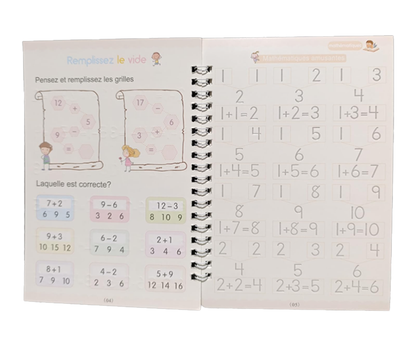 Remplissez le vide
Pensez et remplissez les grilles
12 17
+ -
5 3
9 6
= =
+ -
Laquelle est correcte?
7+2 9-6 12-3
6 9 5 3 2 6 8 10 9
9+3 6-2 2+1
10 15 12 7 9 4 3 4 6
8+1 4-2 5+9
7 9 10 2 3 6 12 14 16
1 1 1 2 1 3
2 3 4
1+1=2 1+2=3 1+3=4
1 4 1 5 1 6
5 6 7
1+4=5 1+5=6 1+6=7
1 7 1 8 1 9
8 9 10
1+7=8 1+8=9 1+9=10
2 2 2 3 2 4
4 5 6
2+2=4 2+3=5 2+4=6